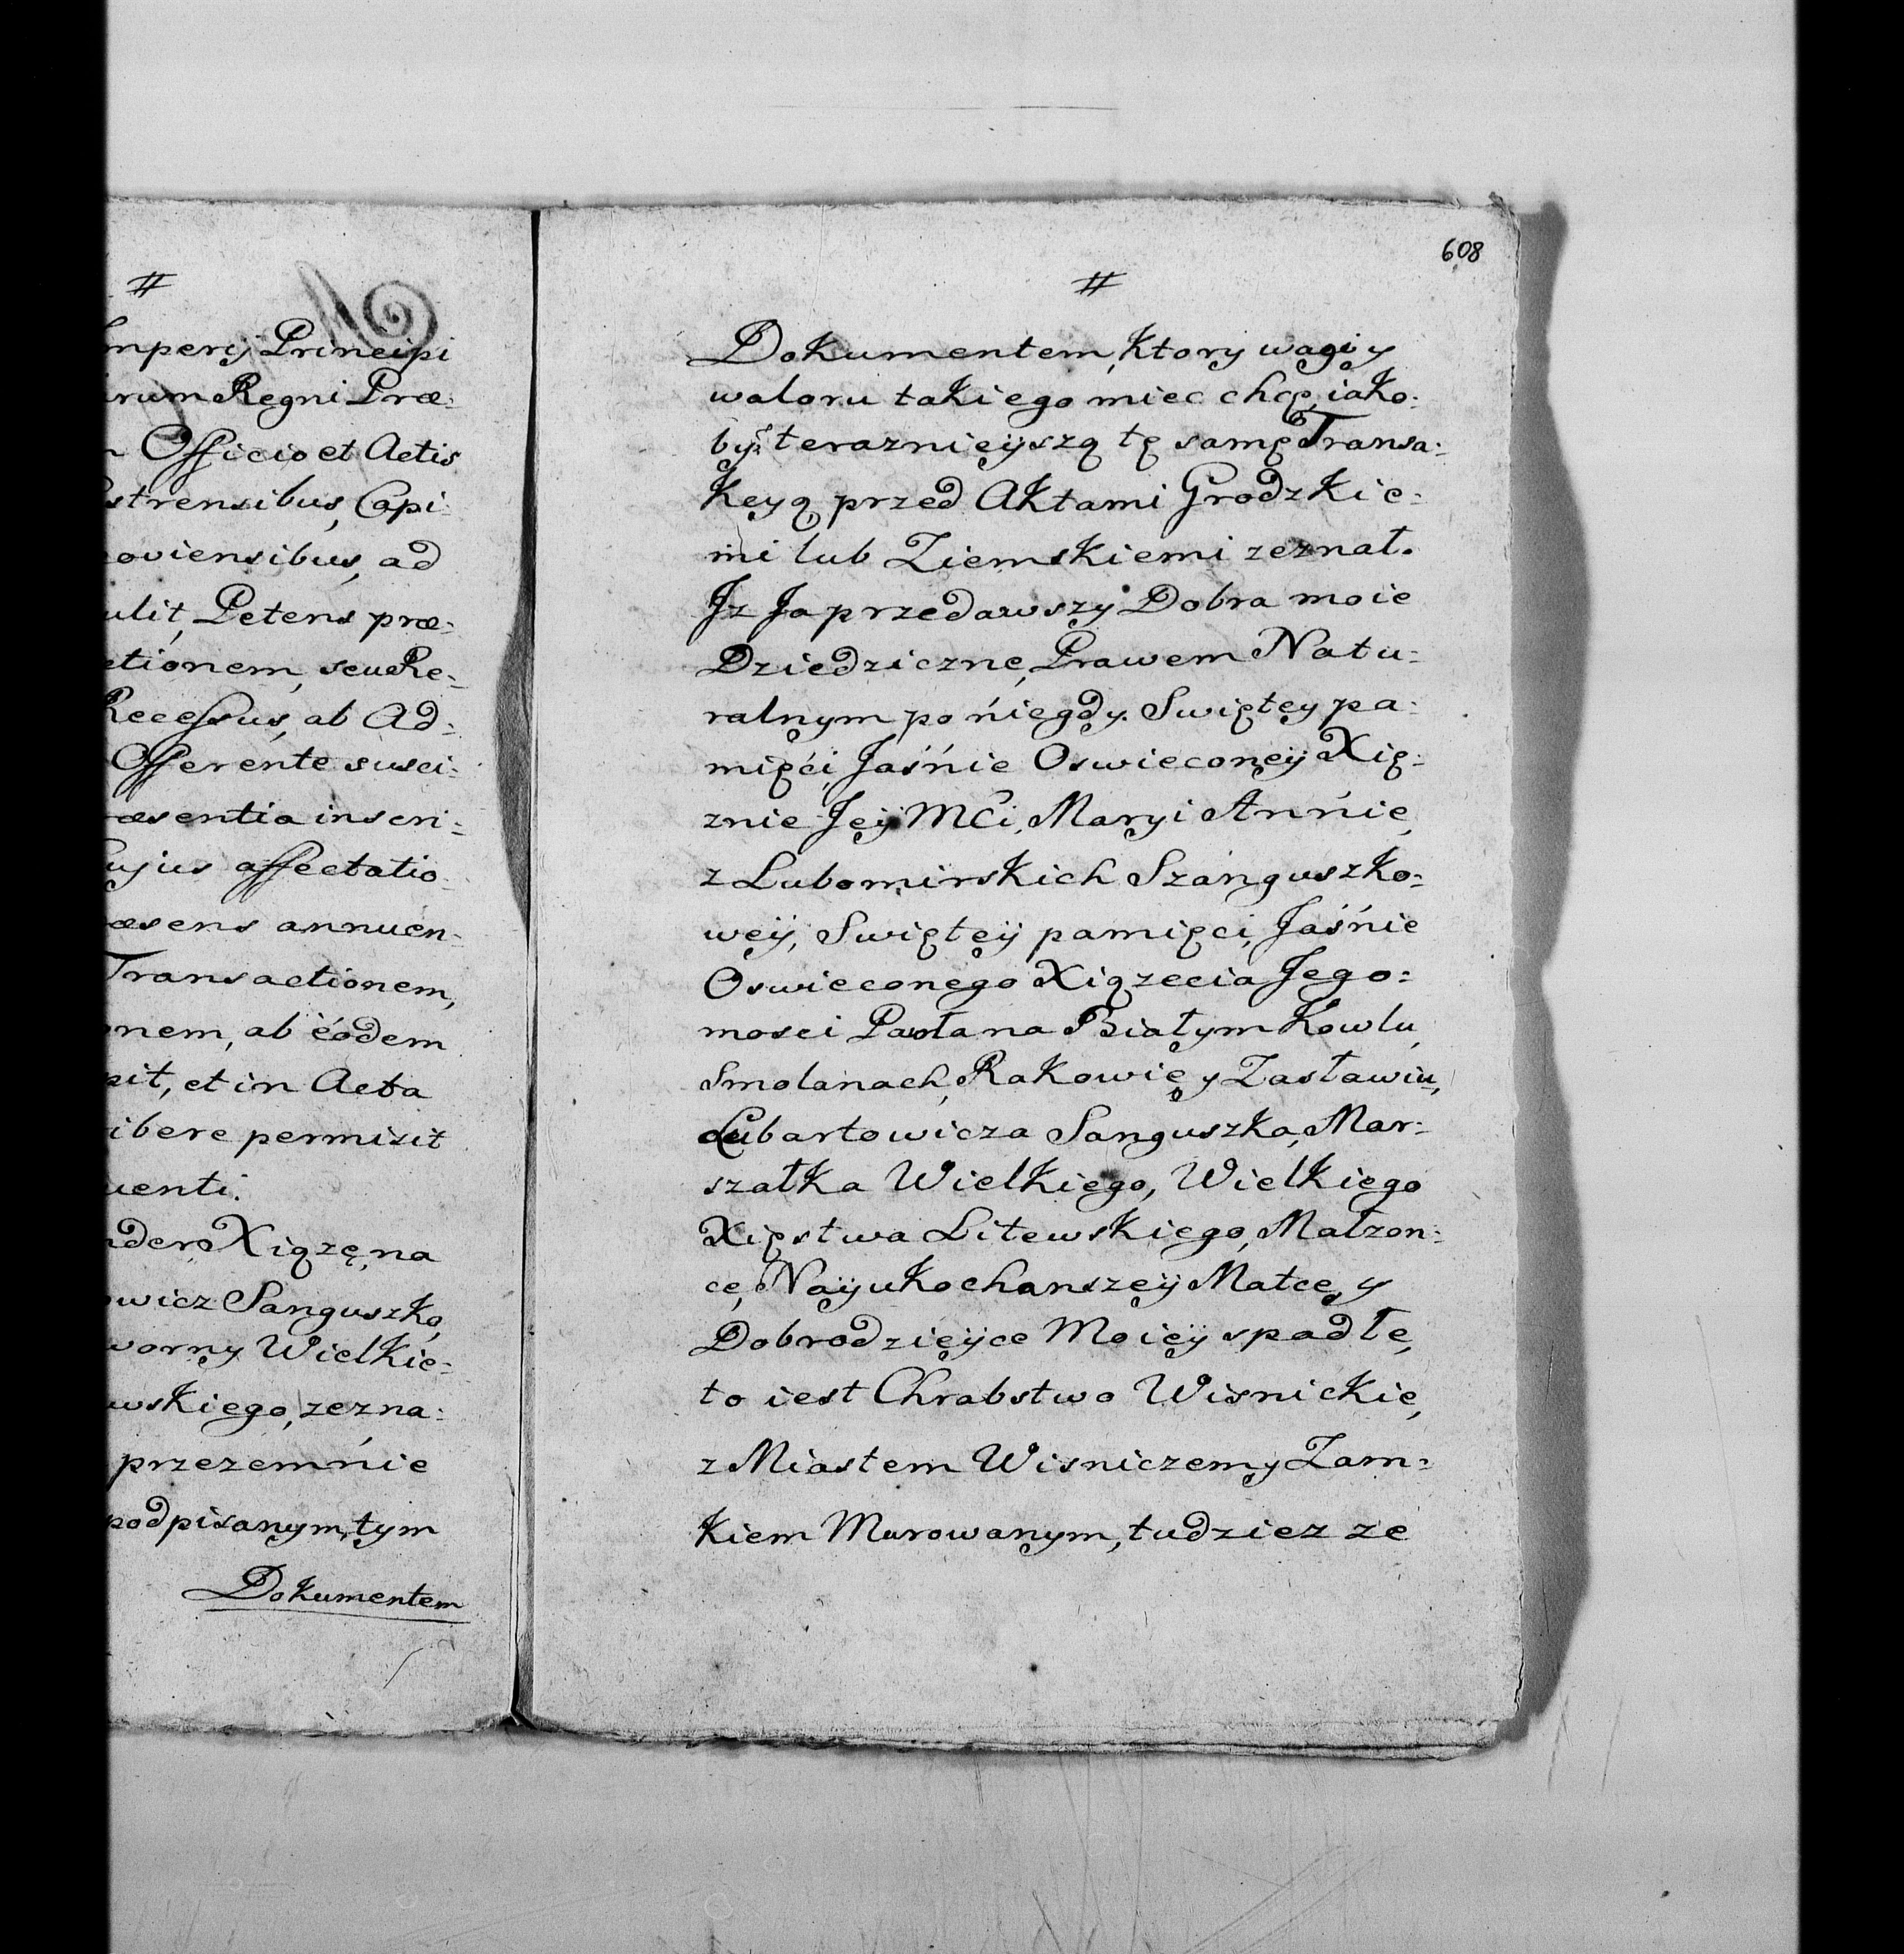 #
mperij Principi
rum Regni Præ:
Officio et Actis
strensibus, Capi:
coviensibus, ad
ulit, Petens præ:
ctionem, seu Re:
Recessus, ab Ad:
Offerente susci:
æsentia inscri:
ujus affectatio
æsens annuen:
Transactionem,
onem, ab eodem
pit, et in Acta
ibere permisit
uenti.
nder Xiążę, na
owicz Sanguszko,
worny Wielkie:
wskiego, zezna:
przezemnie
podpisanym, tym
Dokumentem
608
#
Dokumentem, Ktory wagi y
waloru takiego miec chcę, iako:
bym terazniejÿszą tę samę Transa:
Kcyą, przed Aktami Grodzkie:
mi lub Ziemskiemi zeznał.
Jz Ja przedawszy Dobra moie
Dziedziczne, Prawem Natu:
ralnym po niegdy. Swiętey pa:
mięci, Jaśnie Oswieconeÿ Xię:
znie Jeÿ MCi, Maryi Annie,
z Lubomirskich Szanguszko:
weÿ, Swięteÿ pamięci, Jaśnie
Oswieconego Xiązecia Jego:
mosci Pawła na Białym Kowlu,
Smolanach, Rakowie y Zasławiu,
Lubartowicza Sanguszka, Mar:
szałka Wielkiego, Wielkiego
Xięstwa Litewskiego, Małzon:
ce, Naÿukochanszeÿ Matce, y
Dobrodzieÿce Moieÿ spadłe,
to iest Chrabstwo Wisnickie,
z Miastem Wisniczem y Zam:
Kiem Murowanym, tudziez ze